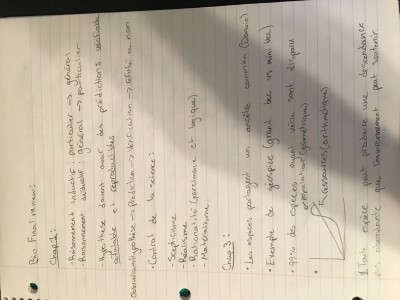 Bio Final review:
Chap 1:
• Raisonnement inductif: particulier → général
• Raisonnement déductif: général → particulier
• Hypothèse doivent avoir des prédictions vérifiable
réfutable et reproductibles
Observation → Hypothèse → prédiction → Vérification → réfuté ou non
• Contrat de la science:
- Scepticisme
- Réalisme
- Rationalité (parcimonie et logique)
- Matérialisme
Chap 3:
• Les espèces partagent un ancêtre commun (Darwin)
• Exemple de géospize (grand bec vs mini bec)
• 99% des espèces ayant vécu sont disparu
population (géométrique)
ressources (arithmétique)
1 Toute espèce peut produire une descendance
que l'environnement peut soutenir